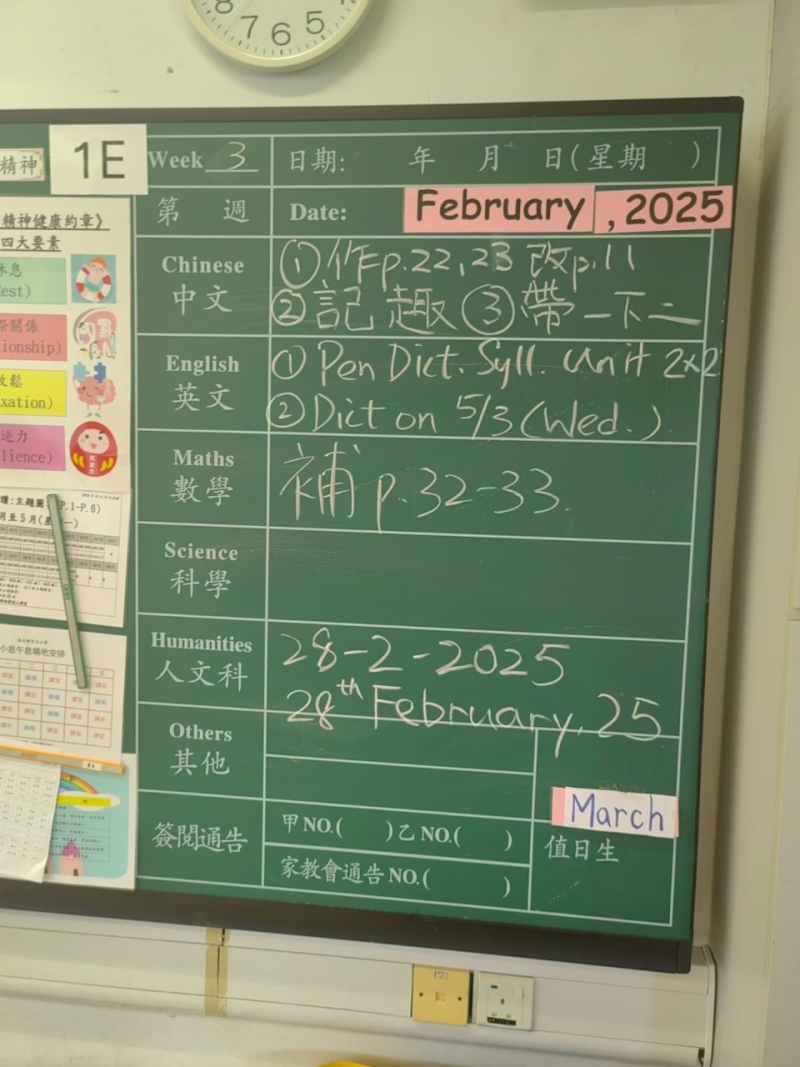 8 7 6 5
精神
1E
Week 3
日期: 年 月 日(星期 )
第 週
Date: February , 2025
精神健康約章》
四大要素
休息
est)
關係
ionship)
放鬆
xation)
逆力
lience)
讀:主題圖 P.1-P.6)
月至5月(
小息午息場地安排
Chinese
中文
① 作p.22,23 改p.11
② 記 趣 ③ 帶一下二
English
英文
① Pen Dict. Syll. Unit 2x2
② Dict on 5/3 (Wed.)
Maths
數學
補 p.32-33
Science
科學
Humanities
人文科
28-2-2025
28th February, 25
Others
其他
March
簽閱通告
甲 NO.( )乙 NO.( )
值日生
家教會通告 NO.( )